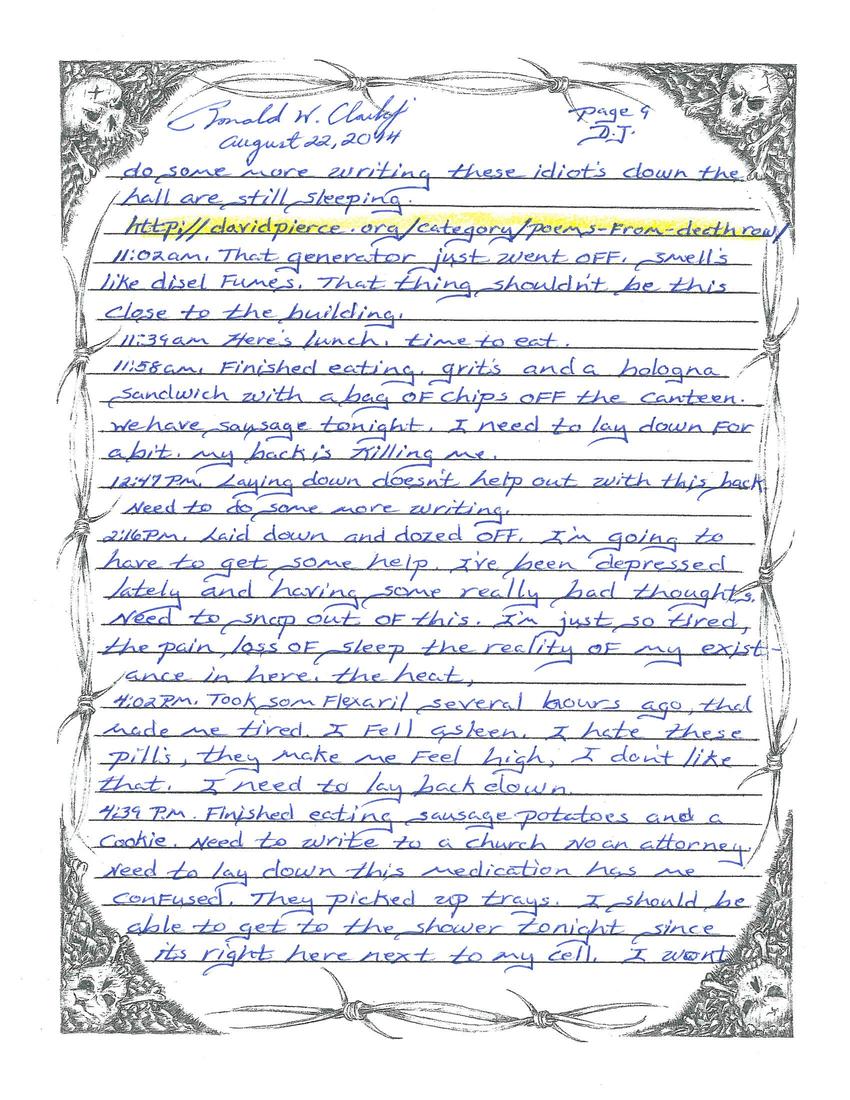 Ronald W. Clark Jr
page 9
August 22, 2014
D.J.
do some more writing these idiot's down the
hall are still sleeping.
http://davidpierce.org/category/poems-from-deathrow/
11:02am. That generator just went off. smell's
like disel Fumes. That thing shouldn't be this
close to the building.
11:39am Here's lunch. time to eat.
11:58am. Finished eating. grit's and a bologna
sandwich with a bag of chips off the canteen.
We have sausage tonight. I need to lay down for
a bit. my back is killing me.
12:47 Pm. Laying down doesn't help out with this back
Need to do some more writing.
2:16 P.M. Laid down and dozed off. I'm going to
have to get some help. I've been depressed
lately and having some really bad thoughts.
Need to snap out of this. I'm just so tired,
the pain, loss of sleep the reality of my exist-
ance in here. the heat,
4:02 P.M. Took som Flexaril several hours ago, that
made me tired. I Fell asleep. I hate these
pill's, they make me Feel high, I don't like
that. I need to lay back down.
4:39 P.M. Finished eating sausage potatoes and a
cookie. Need to write to a church No an attorney.
Need to lay down this medication has me
confused. They picked up trays. I should be
able to get to the shower tonight since
its right here next to my cell. I wont